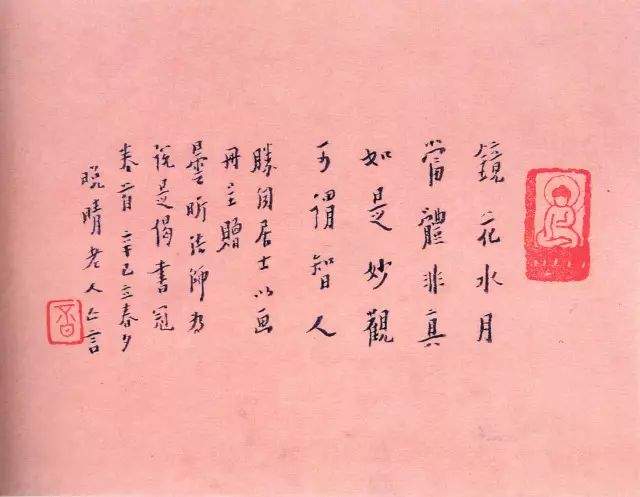 鏡花水月
當體非真
如是妙觀
可謂智人
勝閏居士以画
冊呈贈
曇昕法師为
說是偈書冠
卷首辛巳立春夕
晚晴老人亡言